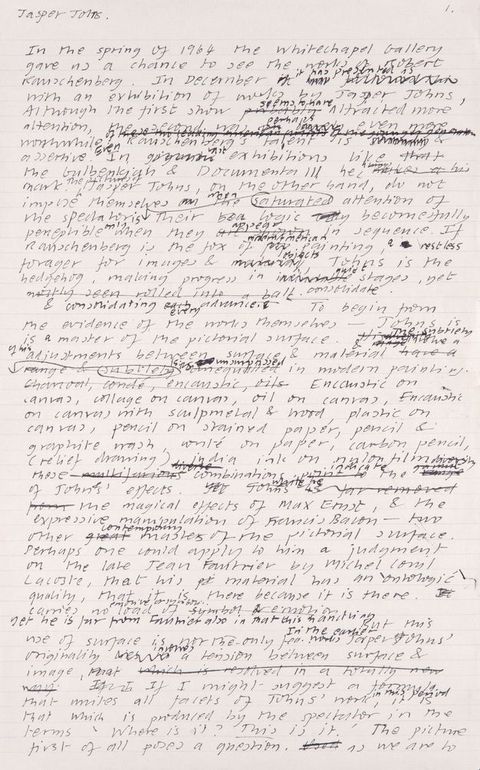 Jasper Johns.
1.
In the spring of 1964 the Whitechapel Gallery
gave us a chance to see the works of Robert
Rauschenberg. In December it has presented us
with an exhibition of works by Jasper Johns,
Although the first show seems to have attracted more
attention, the second was perhaps even more
worthwhile. Rauschenberg's talent is &
assertive. Even In vast exhibitions like that
the Gulbenkian & Documenta III he his
mark. The pictures Jasper Johns, on the other hand, do not
impose themselves on the saturated attention of
the spectator. Their logic only becomes fully
perceptible when they appear in sequence. If
Rauschenberg is the fox of American painting, a restless
forager for images & objects Johns is the
hedgehog, making progress in stages, yet
mostly seen rolled into a ball. consolidate
& consolidating each every advance. To begin from
the evidence of the works themselves — Johns is
is a master of the pictorial surface. & The subtlety
of his adjustments between surface & material have a
range & subtlety unsurpassed unequalled in modern painting.
Charcoal, conté, encaustic, oils. Encaustic on
canvas, collage on canvas, oil on canvas, Encaustic
on canvas with sculpmetal & wood, plastic on
canvas, pencil on stained paper, pencil &
graphite wash, conté on paper, carbon pencil,
(relief drawing), India ink on nylon film
these multifarious diverse combinations indicate the
of Johns' effects. Johns far removed
from the magical effects of Max Ernst, & the
expressive manipulation of Francis Bacon — two
other great contemporary masters of the pictorial surface.
Perhaps one could apply to him a judgment
on the late Jean Fautrier by Michel Conil
Lacoste, that his material has an ontologic
quality, that it is there because it is there. It
carries no load of symbol & emotion.
Yet he is far from Fautrier also in that his handling
But this
use of surface is not the only Jasper Johns'
originality involves a tension between surface &
image, that which is resolved in a totally new
way. If I might suggest a formula
that unites all facets of Johns' work, in this period it is
that which is produced by the spectator in the
terms 'Where is it? This is it.' The picture
first of all poses a question. as we are to